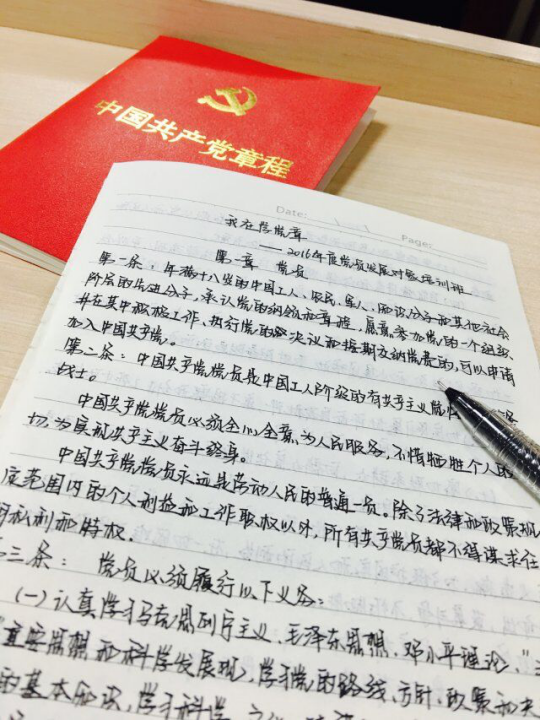 中国共产党章程
Date:
Page:
我在学党章
——2016年度党员发展对象培训班
第一章 党员
第一条：年满十八岁的中国工人、农民、军人、知识分子和其他社会
阶层的先进分子，承认党的纲领和章程，愿意参加党的一个组织
并在其中积极工作、执行党的决议和按期交纳党费的，可以申请
加入中国共产党。
第二条：中国共产党党员是中国工人阶级的有共产主义觉
战士。
中国共产党党员必须全心全意为人民服务，不惜牺牲个人的
切，为实现共产主义奋斗终身。
中国共产党党员永远是劳动人民的普通一员。除了法律和政策规
定范围内的个人利益和工作职权以外，所有共产党员都不得谋求任
私利和特权。
三条： 党员必须履行以下义务：
(一)认真学习马克思列宁主义、毛泽东思想、邓小平理论、"三
重要思想和科学发展观，学习党的路线、方针、政策和决
的基本知识，学习科学、